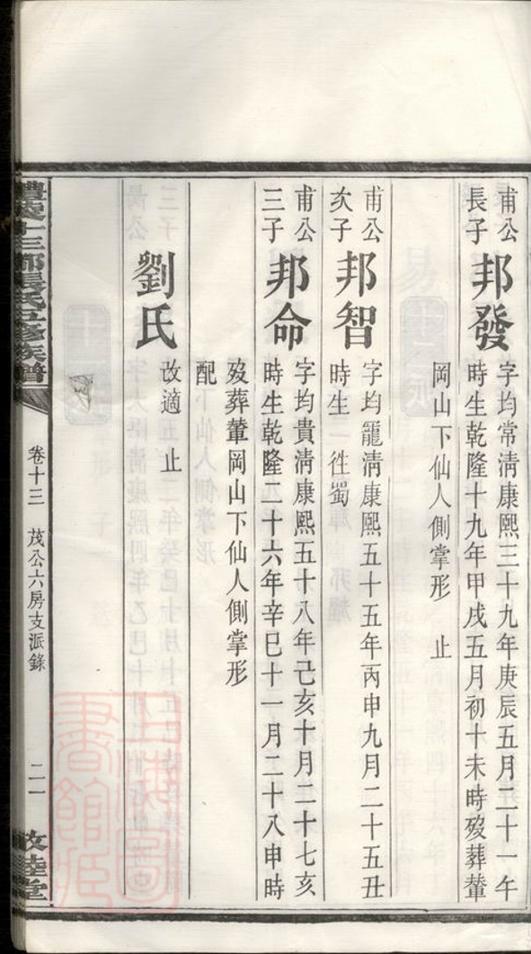 甫公長子
邦發
字均常清康熙三十九年庚辰五月二十一午
時生乾隆十九年甲戌五月初十未時歿葬輋
岡山下仙人側掌形　止
甫公次子
邦智
字均寵清康熙五十五年丙申九月二十五丑
時生　徃蜀
甫公三子
邦命
字均貴清康熙五十八年己亥十月二十七亥
時生乾隆二十六年辛巳十一月二十八申時
歿葬輋岡山下仙人側掌形
配
劉氏
改適　止
十三都張氏五修族譜
卷十三　茂公六房支派錄
二一
敦睦堂
上海圖書館藏